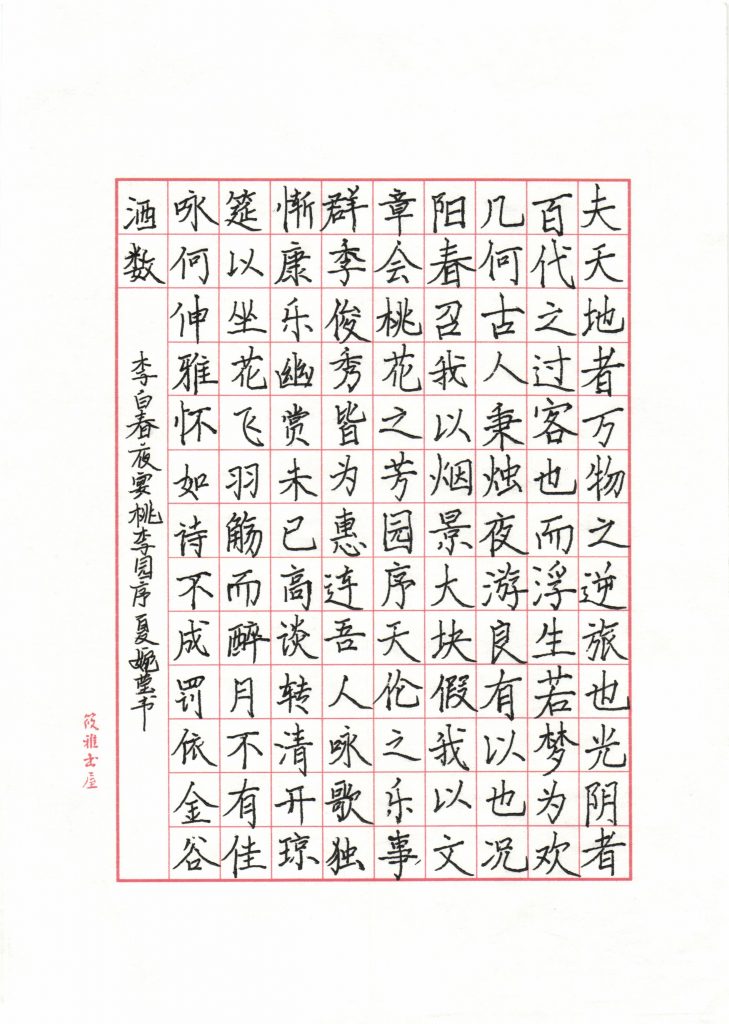 夫天地者万物之逆旅也光阴者
百代之过客也而浮生若梦为欢
几何古人秉烛夜游良有以也况
阳春召我以烟景大块假我以文
章会桃花之芳园序天伦之乐事
群季俊秀皆为惠连吾人咏歌独
惭康乐幽赏未已高谈转清开琼
筵以坐花飞羽觞而醉月不有佳
咏何伸雅怀如诗不成罚依金谷
酒数
李白春夜宴桃李园序 夏婉莹书
筱雅书屋